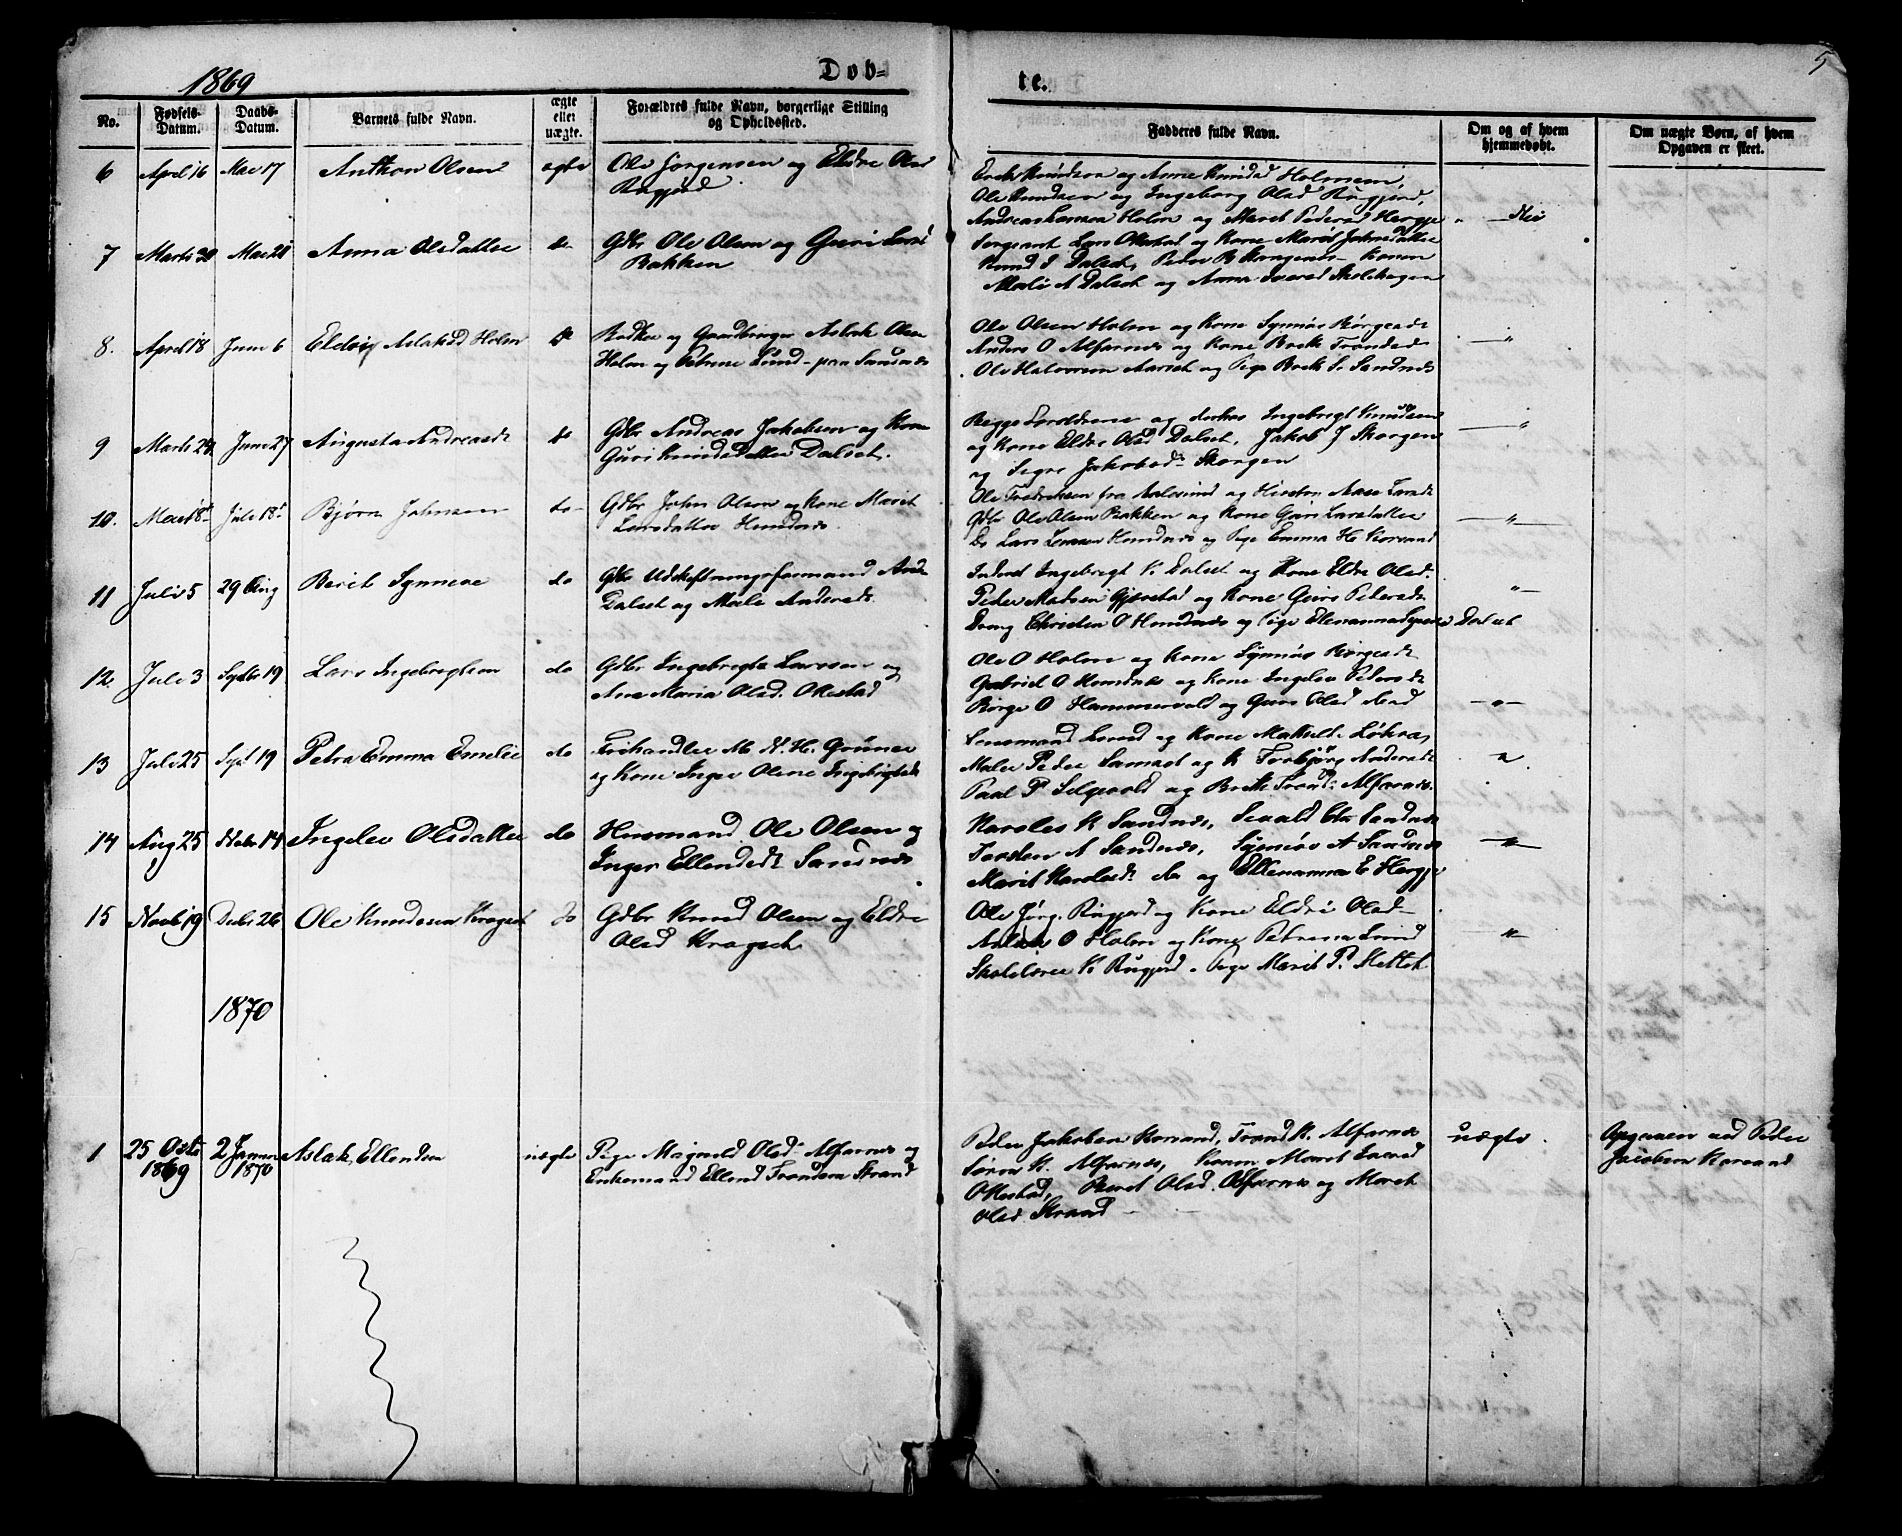 1869
Døb-
te.
5
No.
Fødsels-
Datum.
Daabs-
Datum.
Barnets fulde Navn.
ægte
eller
uægte.
Forældres fulde Navn, borgerlige Stilling
og Opholdssted.
Fadderes fulde Navn.
Om og af hvem
hjemmedøbt.
Om uægte Børn, af hvem
Opgaven er skeet.
6 April 16 Mai 17 Anthon Olsen ægte Ole Jørgensen og Eldre Olsd
Rugjerd
Knudsen og Anne Knudsd Holmem,
Ole Knudsen og Ingeborg Olsd Rugjerd,
Andreas Larsen Holm og Marit Pedersd Hergje " Nei
7 Marts 30 Mai 28 Anna Olsdatter do Gdbr Ole Olsen og Guri Larsd
Bakken
Sergeant Lars Okestad og Kone Marit Johnsdatter
Knud J Dalset, Peder B Skorgenes Konen
Mali A Dalset og Anna Iversd Skolehagen
8. April 18 Juni 6 Eldvig Aslaksd Holm do Rodker og Gaardbruger Aslak Olsen
Holm og Petrine Lund paa Sandnes
Ole Olsen Holm og Kone Synnøv Børgesdt
Anders O Alfarnes og Kone Brit Trondsd
Ole Halvorsen Aarset og Pige Brit S. Sandnes
"
9 Marts 24 Juni 27 Augusta Andreasdt do Gdbr Andreas Jakobsen og Kone
Guri Knudsdatter Dalset.
Begge Forældrene og derhos Ingebrigt Knudsen
og Kone Eldre Olsd Dalset, Jakob J Skorgen
og Sigri Jakobsd Skorgen
"
10. Mai 18 Juli 18 Bjørn Johnsen do Gdbr John Olsen og Kone Marit
Larsdatter Hundnes.
Ole Fredriksen fra Aalesund og Hustru Aase Larsdt
Gdbr Ole Olsen Bakken og Kone Guri Larsdatter
Do Lars Larssen Hundnes og Pige Emma H Korsand
"
11 Juli 5 29 Aug Berit Synneve do Gdbr Udskiftningsformand And.
Dalset og Mali Andersdt.
Inderst Ingebregt K. Dalset og Kone Eldre Olsd.
Peder Madsen Gjerstad og Kone Guri Pedersdt
Dreng Christen O Hundnes og Pige Elenanna Dalset
"
12. Juli 3 Septbr 19 Lars Ingebregtsen do Gdbr Ingebregt Larssen og
Ane Maria Olsd. Okestad
Ole O Holm og Kone Synnøv Børgesdt
Gabriel O Hundnes og Kone Ingelev Pedersdt
Børge O Hammervold og Guri Olsd ibid
"
13 Juli 25 Sept 19 Petra Emma Emelie do Forhandler M. N. H. Grüner
og Kone Inger Oline Ingebrigtsdt
Lensmand Lund og Kone Mathild Løkra,
Maler Peder Samset og K Torbjørg Andersdt
Paal P Selgevold og Brit Trondsd. Alfarnes.
"
14 Aug 25 Nobr 14 Ingelev Olsdatter do Husmand Ole Olsen og
Inger Ellendsdt Sandnes
Karoles K Sandnes, Sivald Chr Sandnes
Torsten A Sandnes, Synnøv A Sandnes
Marit Karolsdt do og Ellenanna E Hergje
"
15 Novb 19 Debr 26 Ole Knudsen Kragset do Gdbr Knud Olsen og Eldre
Olsd Kragset
Ole Jørg. Rugjerd og Kone Eldre Olsd
Aslak O Holm og Kone Petrina Lund
Skolelærer K. Rugjerd. Pige Marit P. Slettet
"
1870
1 25 Octb
1869 2 Januar
1870 Aslak Ellendsen uægte Pige Magnild Olsd Alfarnes og
Enkemand Ellend Trondsen Strand
Peder Jakobsen Korsand, Trond K. Alfarnes
Søren K. Alfarnes, Konen Marit Iversd
Okestad, Beret Olsd. Alfarnes og Marit
Olsd. Strand
uægte.
Opgaven ved Peder
Jacobsen Korsand